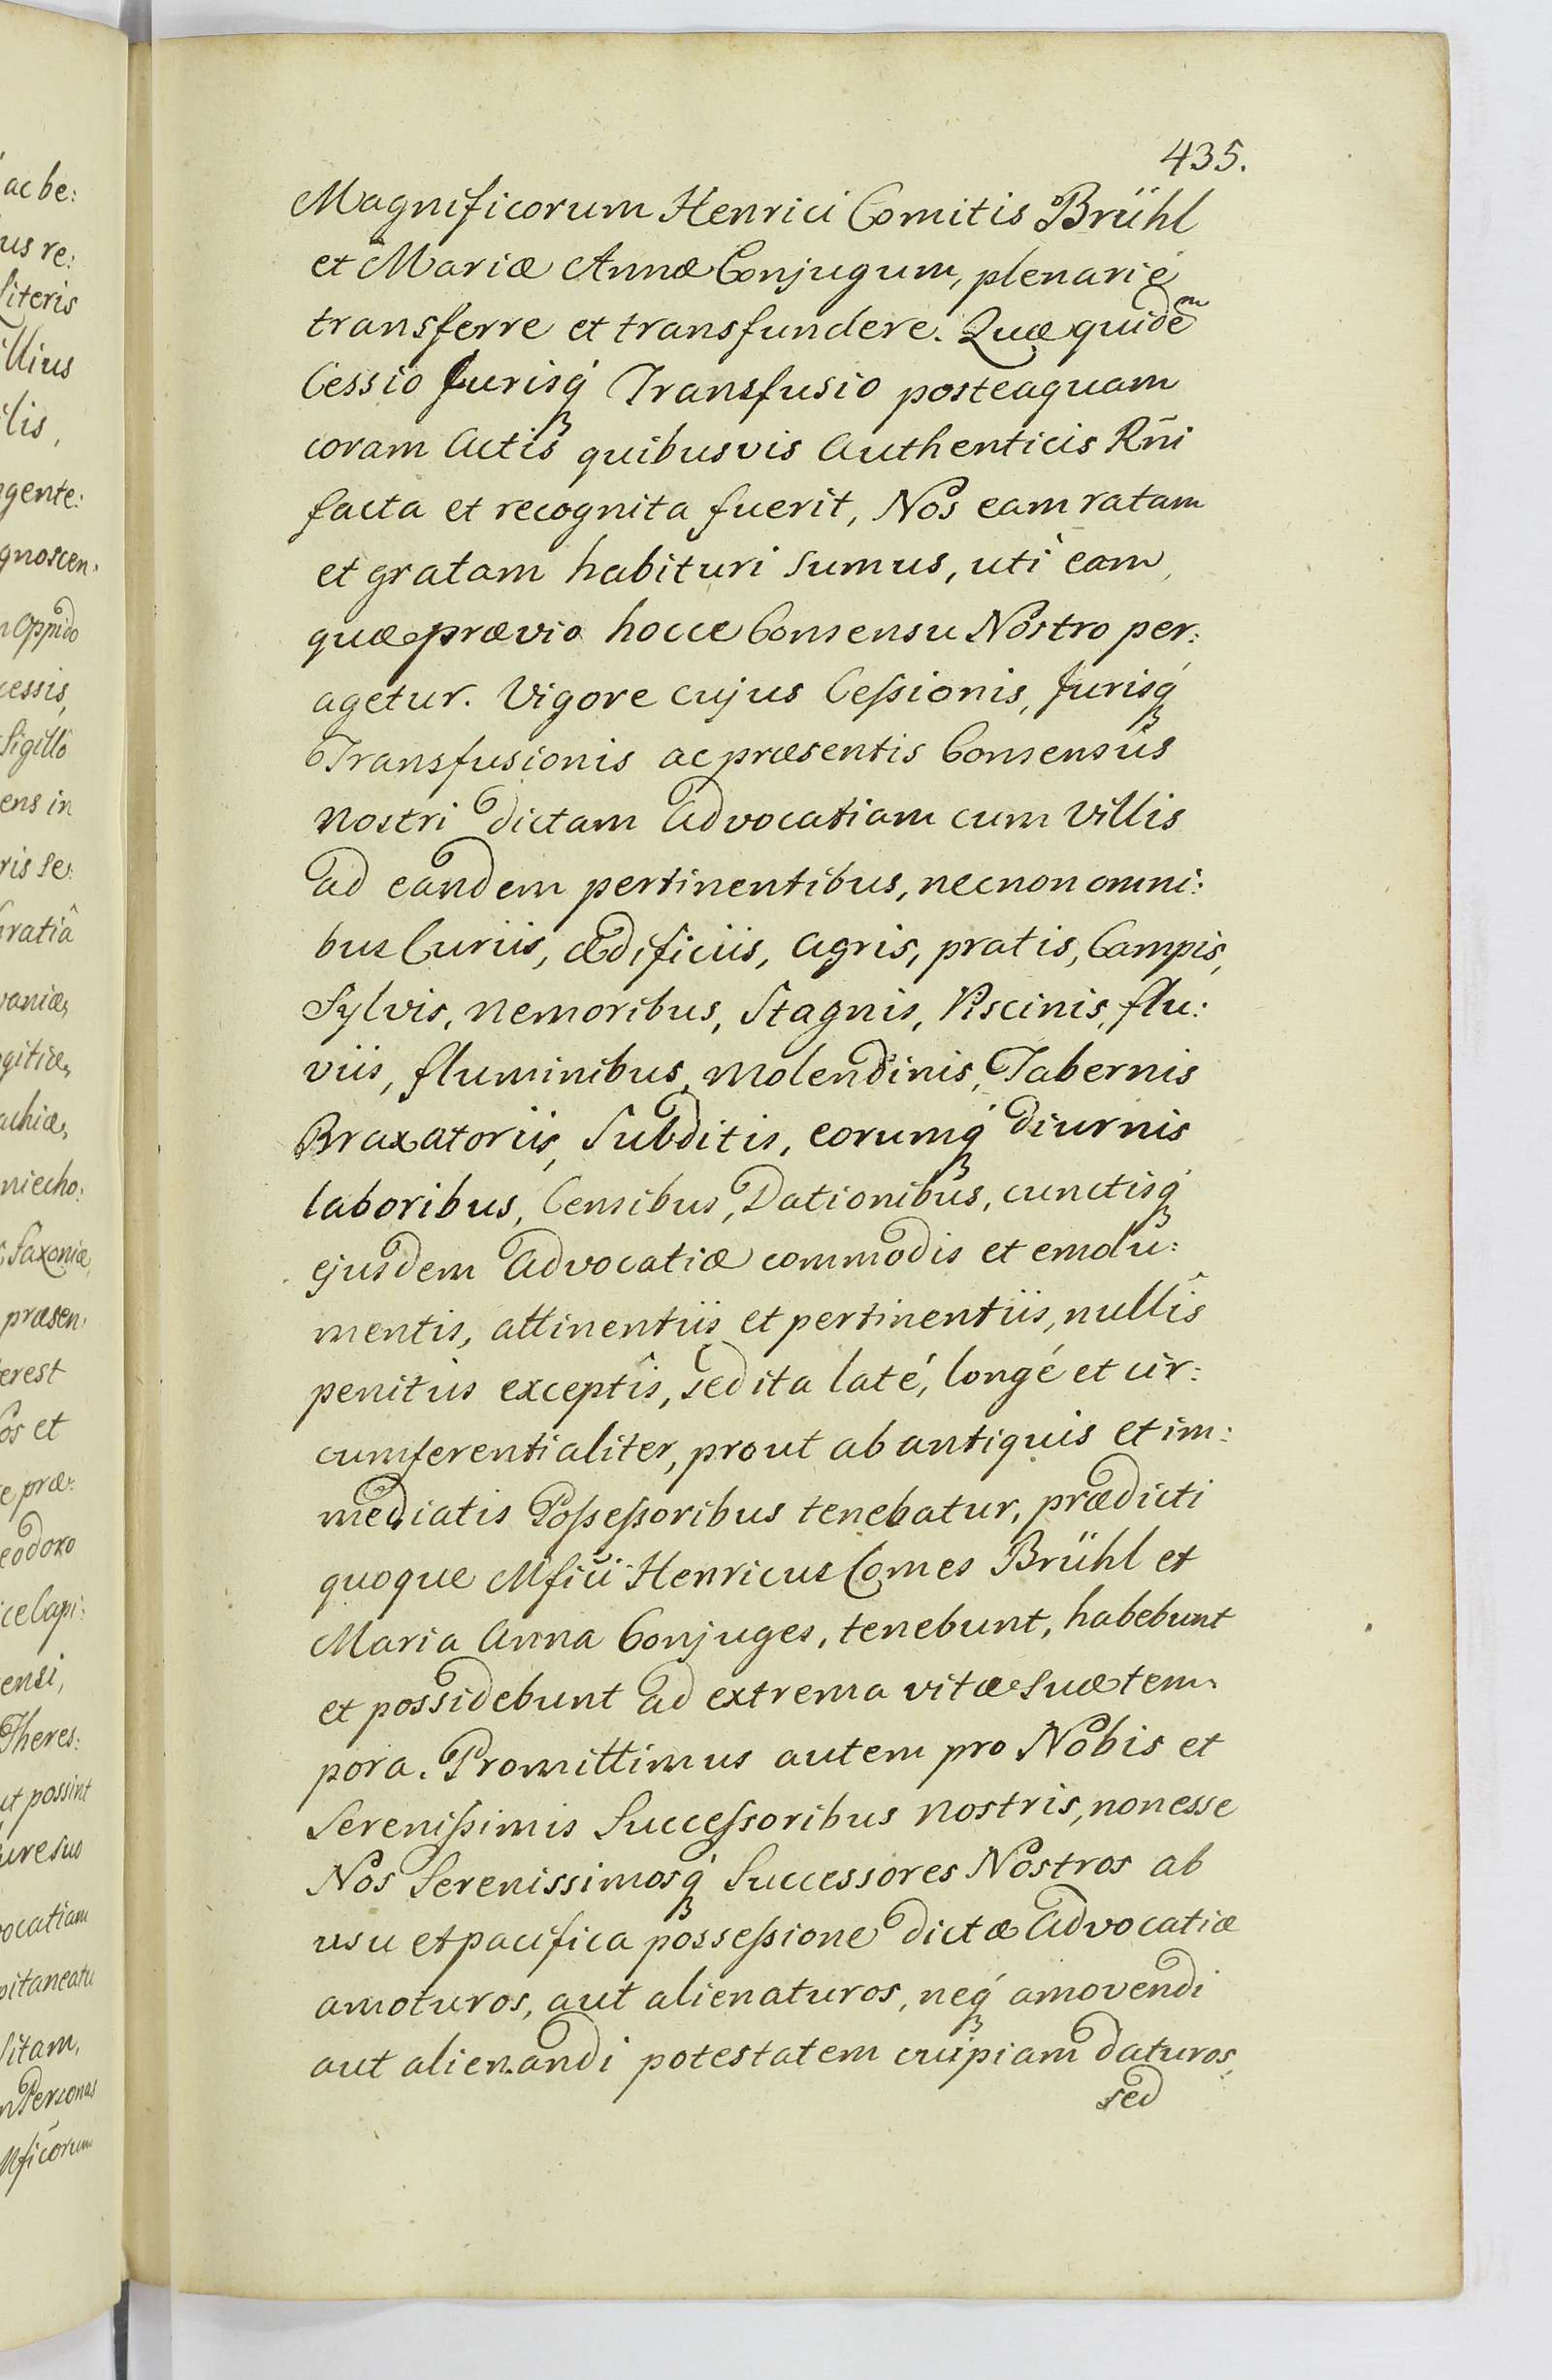 435.
Magnificorum Henrici Comitis Brühl
et Mariæ Annæ Conjugum, plenarié
transferre et transfundere. Quæ quidem̃
Cessio Jurisq́ꝫ Transfusio posteaquam
coram Actis quibusvis Authenticis Rñi
facta et recognita fuerit, Nos eam ratam
et gratam habituri sumus, uti eam,
quæ prævio hocce Consensu Nostro per:
agetur. Vigore cujus Ceſsionis, Jurisq́ꝫ
Transfusionis ac præsentis Consensûs
Nostri dictam Advocatiam cum Villis
ad eandem pertinentibus, necnon omni:
bus Curiis, ædificiis, Agris, pratis, Campis,
Sylvis, Nemoribus, Stagnis, Piscinis, flu:
viis, fluminibus, Molendinis, Tabernis
Braxatoriis, Subditis, eorumq́ꝫ diurnis
laboribus, Censibus, Dationibus, cunctisq́ꝫ
ejusdem Advocatiæ commodis et emolu:
mentis, attinentiis et pertinentiis, nullîs
penitus exceptîs, sed ita laté, longé et cir:
cumferentialiter, prout ab antiquis et im:
mediatis Poſseſsoribus tenebatur, prædicti
quoque Mficĩ Henricus Comes Brühl et
Maria Anna Conjuges, tenebunt, habebunt
et possidebunt ad extrema vitæ suæ tem:
pora. Promittimus autem pro Nobis et
Sereniſsimis Succeſsoribus Nostris, non esse
Nos Serenissimosq́ꝫ Successores Nostros ab
usu et pacifica posseſsione dictæ Advocatiæ
amoturos, aut alienaturos, neq́ꝫ amovendi
aut alienandi potestatem cuipiam daturos,
sed
ac be:
us re:
literis
illius
ilis,
gente:
gnoscen:
Oppido
cessis,
Sigillô
ens in
ris se:
Gratiâ
vaniæ,
gitiæ,
achiæ,
niecho:
Saxoniæ,
præsen:
erest
os et
e præ:
eodoro
ice Capi:
ensi,
Theres:
ut possint
ure suo
vocatiam
pitaneatu
sitam,
Personas
Mficõrum